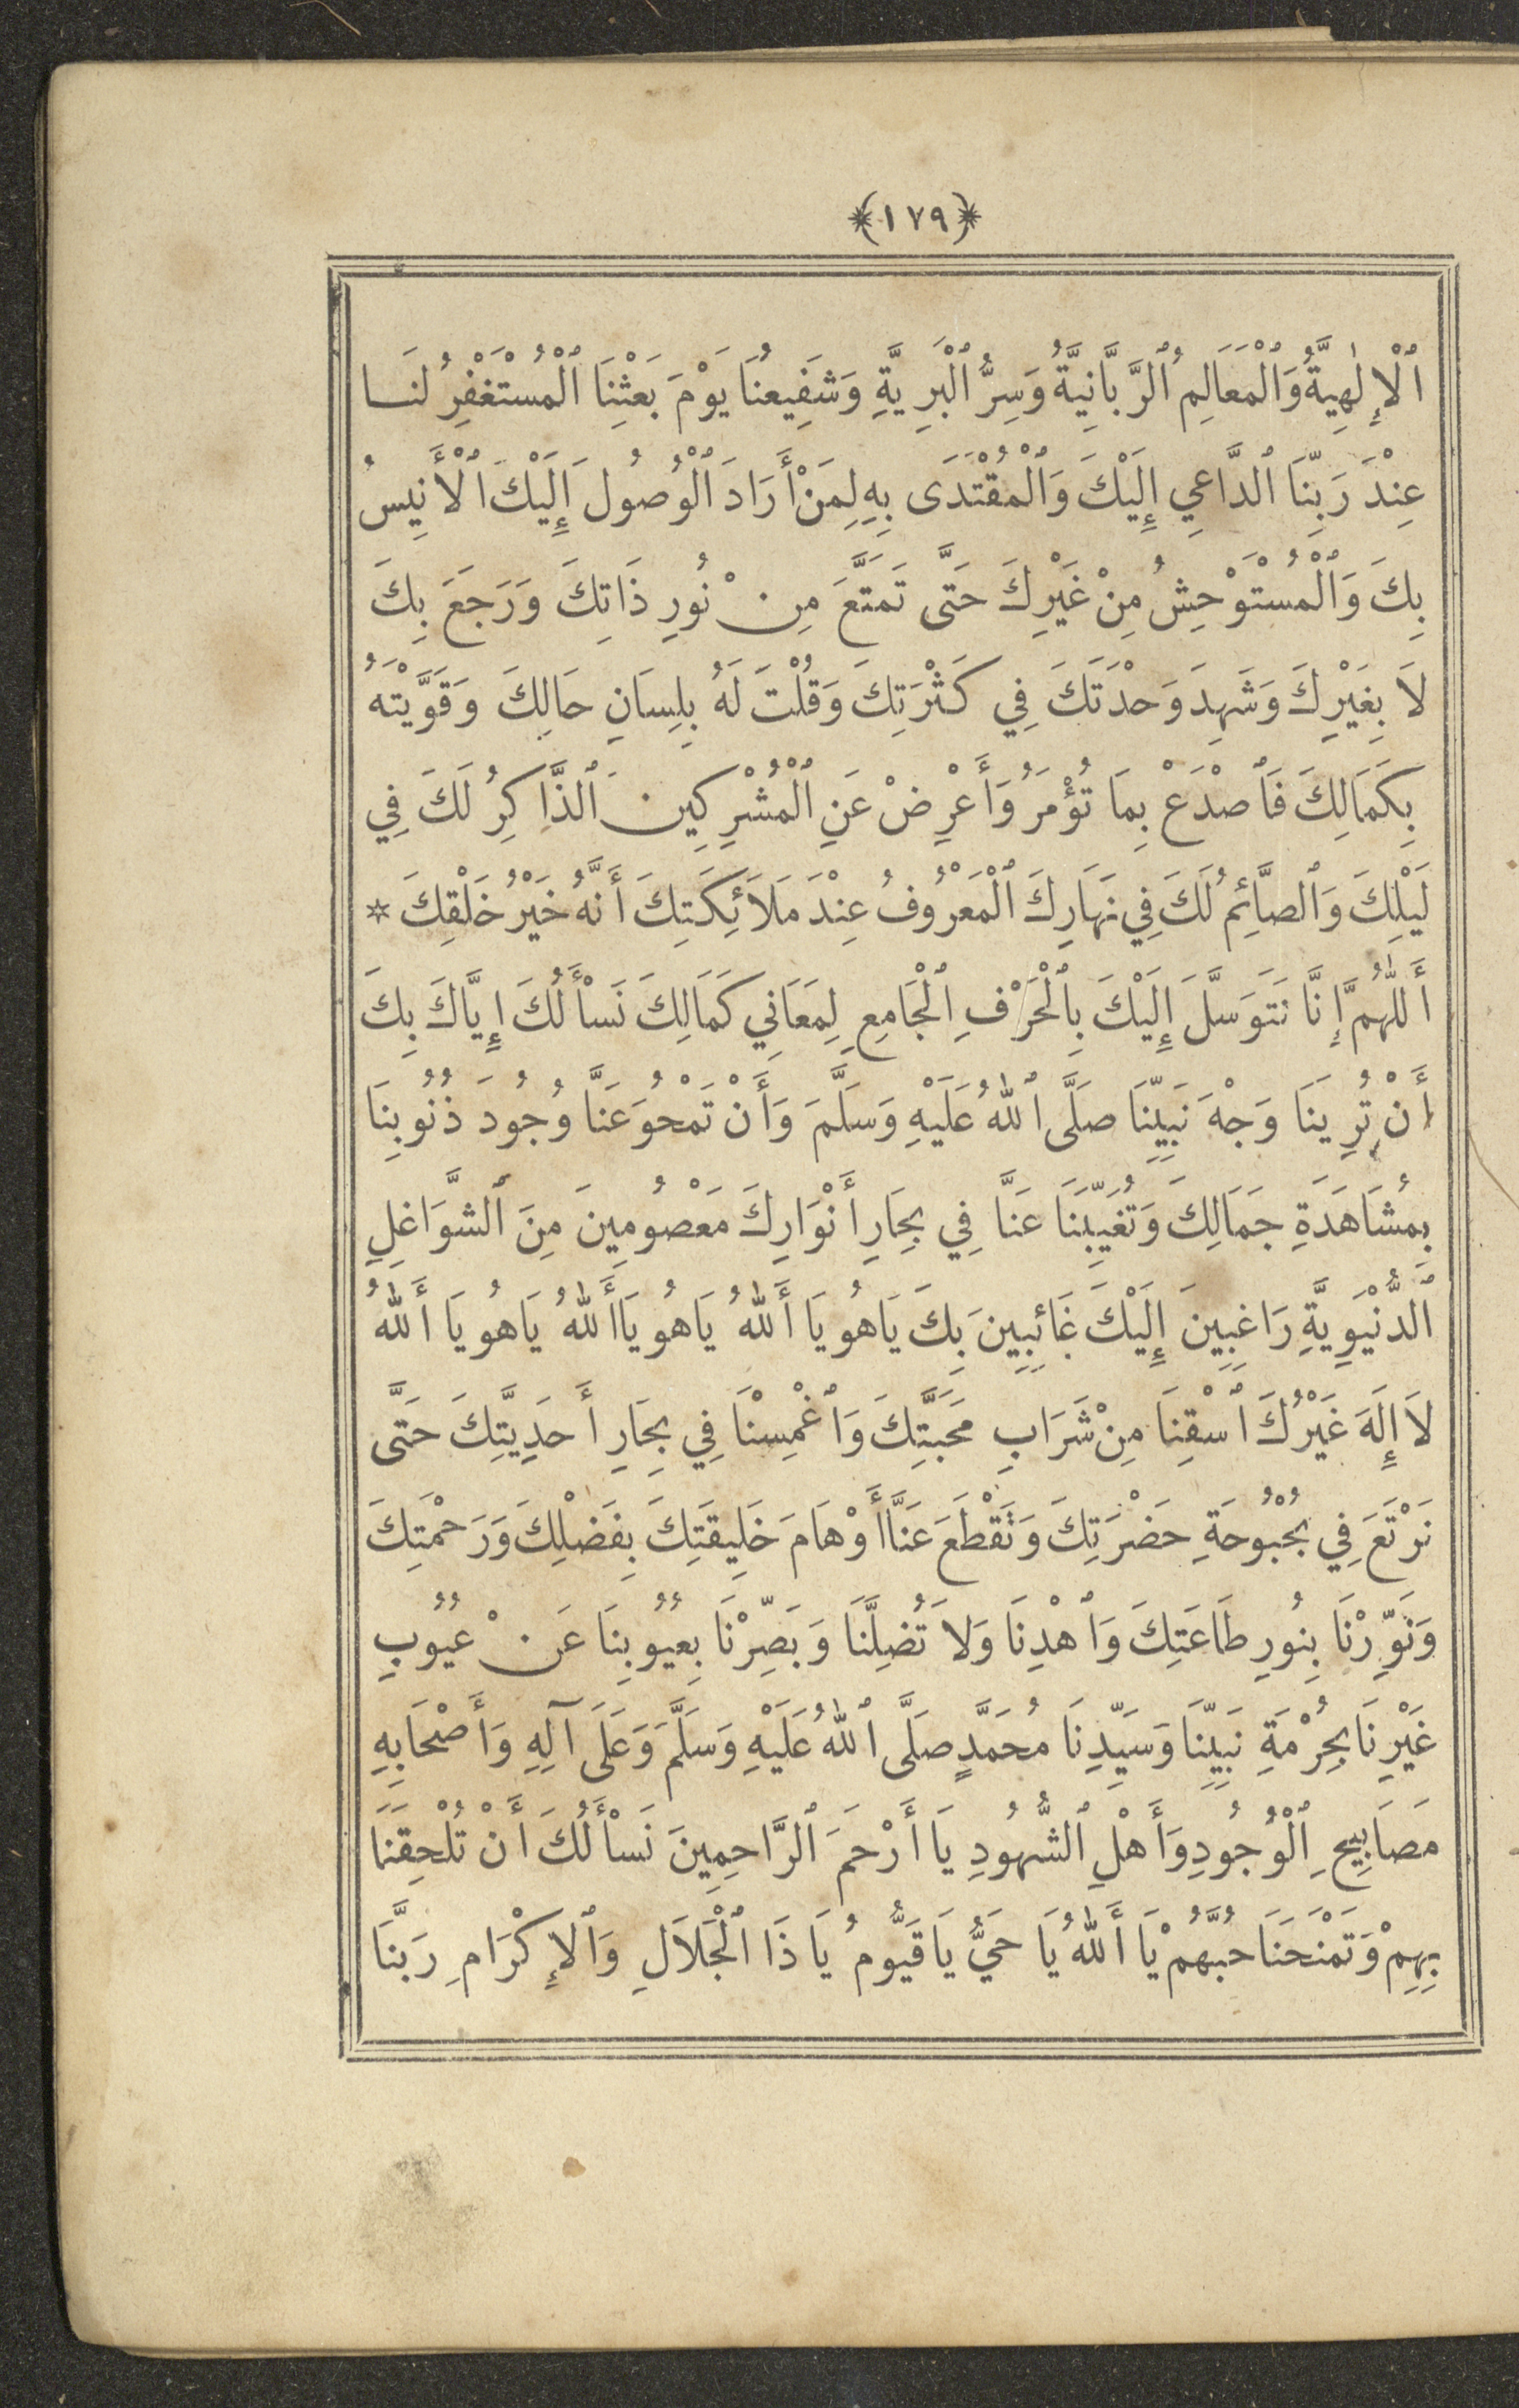 ﴿١٧٩﴾
ٱلْإِلٰهِيَّةُ وَٱلْمَعَالِمُ ٱلرَّبَّانِيَّةُ وَسِرُّ ٱلْبَرِيَّةِ وَشَفِيعُنَا يَوْمَ بَعْثِنَا ٱلْمُسْتَغْفِرُ لَنَا
عِنْدَ رَبِّنَا ٱلدَّاعِي إِلَيْكَ وَٱلْمُقْتَدَى بِهِ لِمَنْ أَرَادَ ٱلْوُصُولَ إِلَيْكَ ٱلْأَنِيسُ
بِكَ وَٱلْمُسْتَوْحِشُ مِنْ غَيْرِكَ حَتَّى تَمَتَّعَ مِنْ نُورِ ذَاتِكَ وَرَجَعَ بِكَ
لَا بِغَيْرِكَ وَشَهِدَ وَحْدَتَكَ فِي كَثْرَتِكَ وَقُلْتَ لَهُ بِلِسَانِ حَالِكَ وَقَوَّيْتَهُ
بِكَمَالِكَ فَٱصْدَعْ بِمَا تُؤْمَرُ وَأَعْرِضْ عَنِ ٱلْمُشْرِكِينَ ٱلذَّاكِرُ لَكَ فِي
لَيْلِكَ وَٱلصَّائِمُ لَكَ فِي نَهَارِكَ ٱلْمَعْرُوفُ عِنْدَ مَلَائِكَتِكَ أَنَّهُ خَيْرُ خَلْقِكَ *
أَللّٰهُمَّ إِنَّا نَتَوَسَّلُ إِلَيْكَ بِٱلْحَرْفِ ٱلْجَامِعِ لِمَعَانِي كَمَالِكَ نَسْأَلُكَ إِيَّاكَ بِكَ
أَنْ تُرِيَنَا وَجْهَ نَبِيِّنَا صَلَّى ٱللّٰهُ عَلَيْهِ وَسَلَّمَ وَأَنْ تَمْحُوَ عَنَّا وُجُودَ ذُنُوبِنَا
بِمُشَاهَدَةِ جَمَالِكَ وَتُغَيِّبَنَا عَنَّا فِي بِحَارِ أَنْوَارِكَ مَعْصُومِينَ مِنَ ٱلشَّوَاغِلِ
ٱلدُّنْيَوِيَّةِ رَاغِبِينَ إِلَيْكَ غَائِبِينَ بِكَ يَاهُو يَا أَللّٰهُ يَاهُو يَاأَللّٰهُ يَاهُو يَا أَللّٰهُ
لَا إِلَهَ غَيْرُكَ ٱسْقِنَا مِنْ شَرَابِ مَحَبَّتِكَ وَٱغْمِسْنَا فِي بِحَارِ أَحَدِيَّتِكَ حَتَّى
نَرْتَعَ فِي بُحْبُوحَةِ حَضْرَتِكَ وَتَقْطَعَ عَنَّا أَوْهَامَ خَلِيقَتِكَ بِفَضْلِكَ وَرَحْمَتِكَ
وَنَوِّرْنَا بِنُورِ طَاعَتِكَ وَٱهْدِنَا وَلَا تُضِلَّنَا وَبَصِّرْنَا بِعُيُوبِنَا عَنْ عُيُوبِ
غَيْرِنَا بِحُرْمَةِ نَبِيِّنَا وَسَيِّدِنَا مُحَمَّدٍ صَلَّى ٱللّٰهُ عَلَيْهِ وَسَلَّمَ وَعَلَى آلِهِ وَأَصْحَابِهِ
مَصَابِيحِ ٱلْوُجُودِ وَأَهْلِ ٱلشُّهُودِ يَا أَرْحَمَ ٱلرَّاحِمِينَ نَسْأَلُكَ أَنْ تُلْحِقَنَا
بِهِمْ وَتَمْنَحَنَا حُبَّهُمْ يَا أَللّٰهُ يَا حَيُّ يَا قَيُّومُ يَا ذَا ٱلْجَلَالِ وَٱلْإِكْرَامِ رَبَّنَا